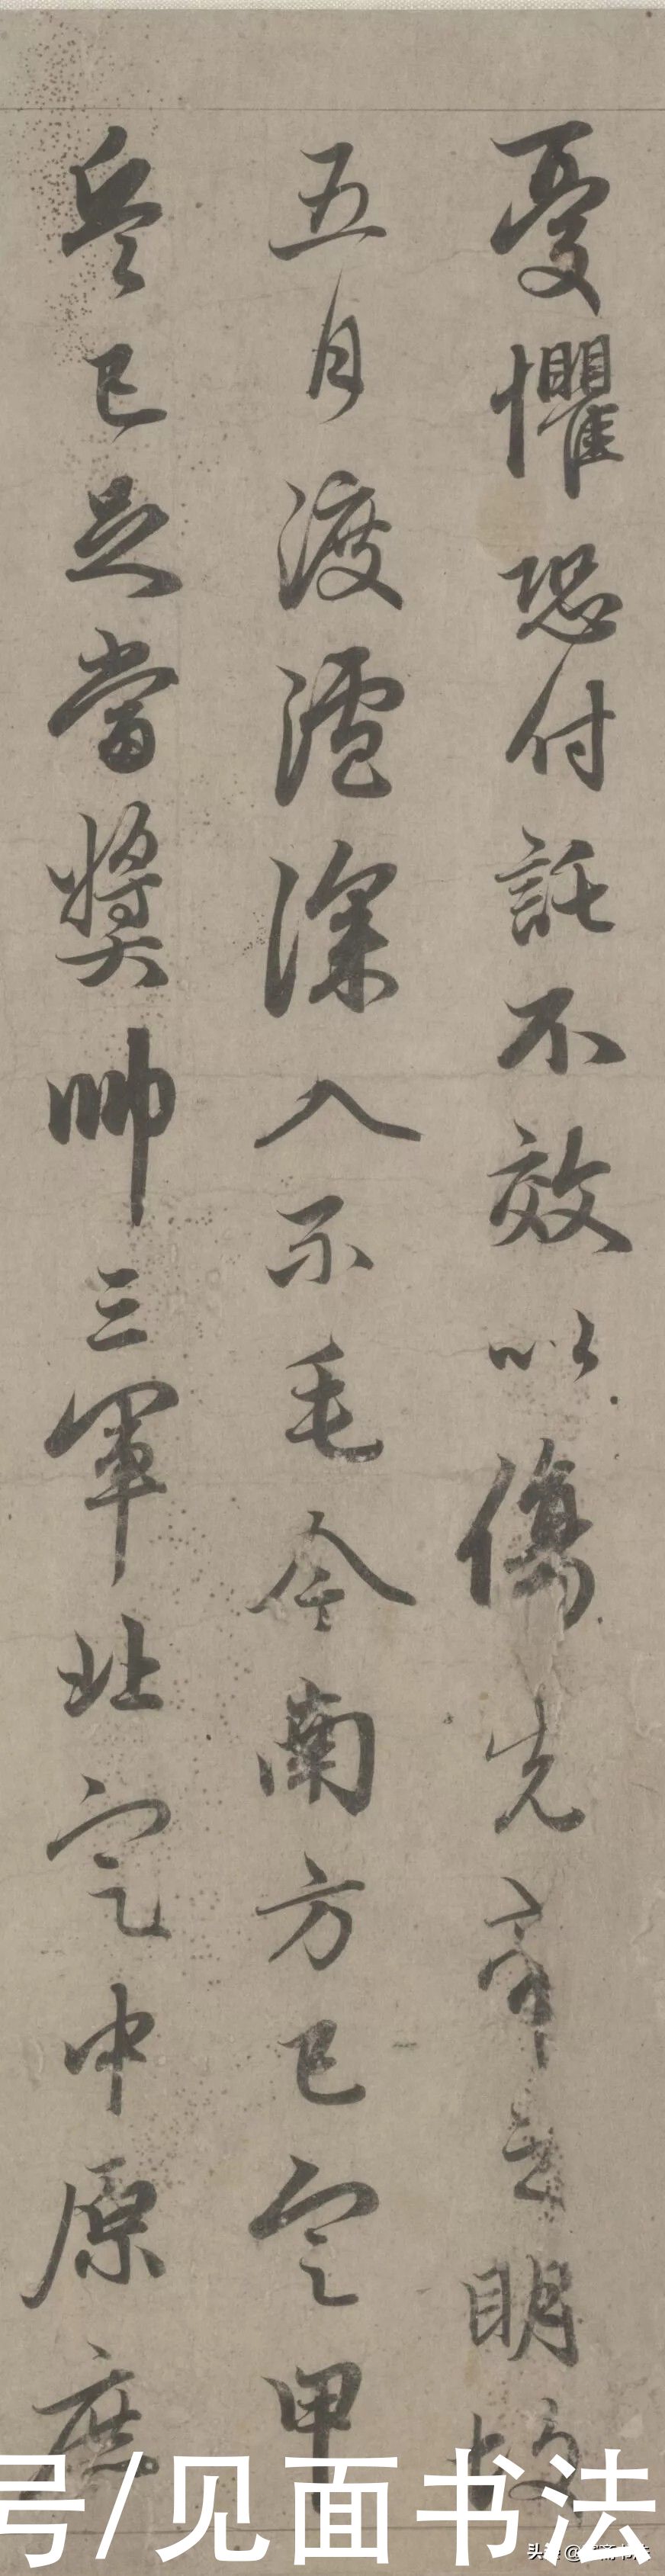 憂懼恐付託不效以傷先帝之明故
五月渡瀘深入不毛今南方已定甲
兵已足當獎帥三軍北定中原庶
号/见面书法
头条